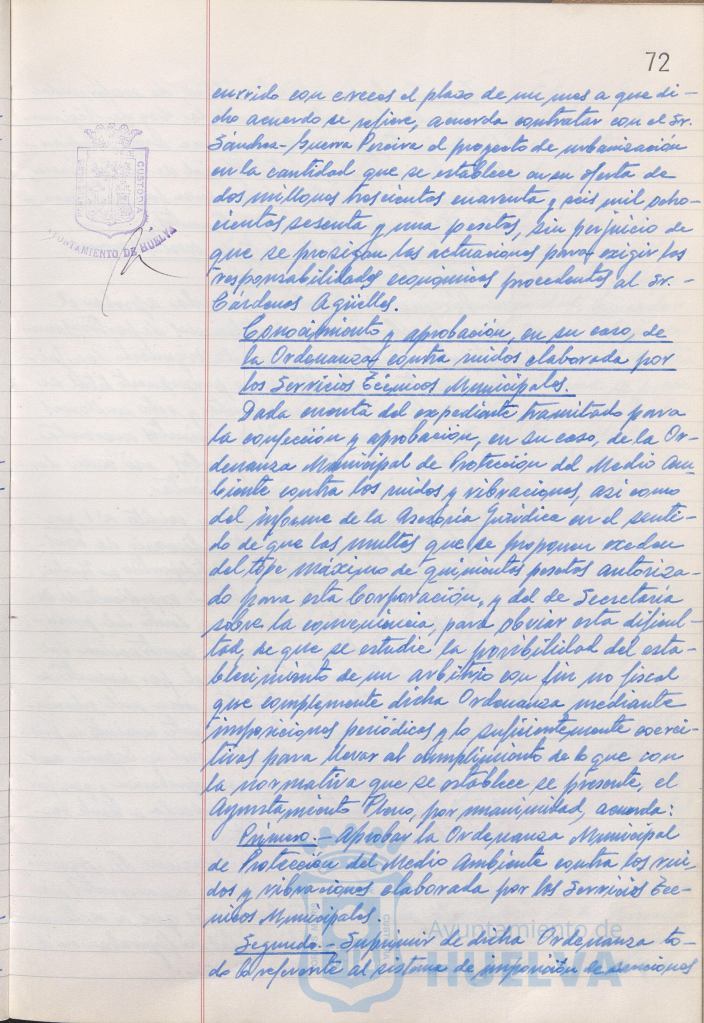 72
currido con creces el plazo de un mes a que di-
cho acuerdo se refiere, acuerda contratar con el Sr.
Sánchez-Guerra Pereira el proyecto de urbanización
en la cantidad que se establece en su oferta de
dos millones trescientos cuarenta y seis mil ocho-
cientos sesenta y una pesetas, sin perjuicio de
que se prosigan las actuaciones para exigir las
responsabilidades económicas procedentes al Sr. -
Cárdenas Agüelles.
Conocimiento y aprobación, en su caso, de
la Ordenanza contra ruidos elaborada por
los Servicios Técnicos Municipales.
Dada cuenta del expediente tramitado para
la confección y aprobación, en su caso, de la Or-
denanza Municipal de Protección del Medio Am-
biente contra los ruidos y vibraciones, así como
del informe de la Asesoría Jurídica en el senti-
do de que las multas que se proponen exceden
del tope máximo de quinientas pesetas autoriza-
do para esta Corporación, y del de Secretaría
sobre la conveniencia, para obviar esta dificul-
tad, de que se estudie la posibilidad del esta-
blecimiento de un arbitrio con fin no fiscal
que complemente dicha Ordenanza mediante
imposiciones periódicas y lo suficientemente coerci-
tivas para llevar al cumplimiento de lo que con
la normativa que se establece se presente, el
Ayuntamiento Pleno, por unanimidad, acuerda:
Primero.- Aprobar la Ordenanza Municipal
de Protección del Medio Ambiente contra los rui-
dos y vibraciones elaborada por los Servicios Téc-
nicos Municipales.
Segundo.- Suprimir de dicha Ordenanza to-
do lo referente al sistema de imposición de sanciones
CUSTODIA
AYUNTAMIENTO DE HUELVA
Ayuntamiento de
HUELVA